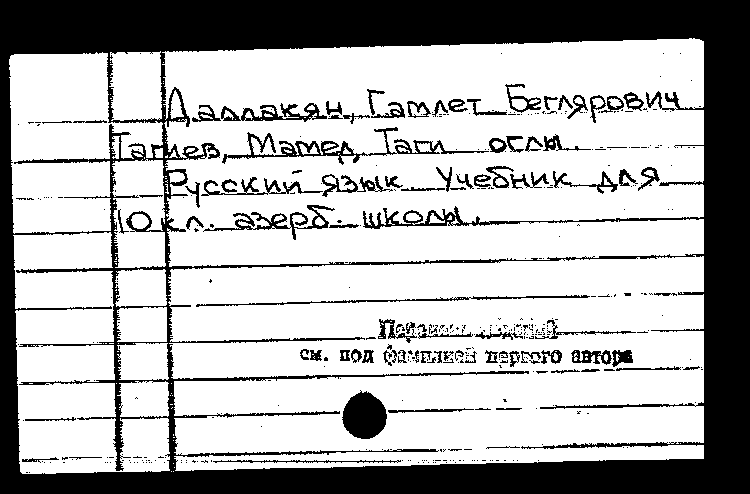 Даллакян, Гамлет Беглярович
Тагиев, Мамед Таги оглы.
Русский язык. Учебник для
10 кл. азерб. школы.
см. под фамилией первого автора